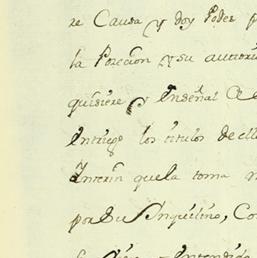 re Causa y doy Poder p
la Porecion y su autori
quisiere y Enseñal
Entrego los titulos de ell
Interin que la toma
por Su Ynquilino, Co